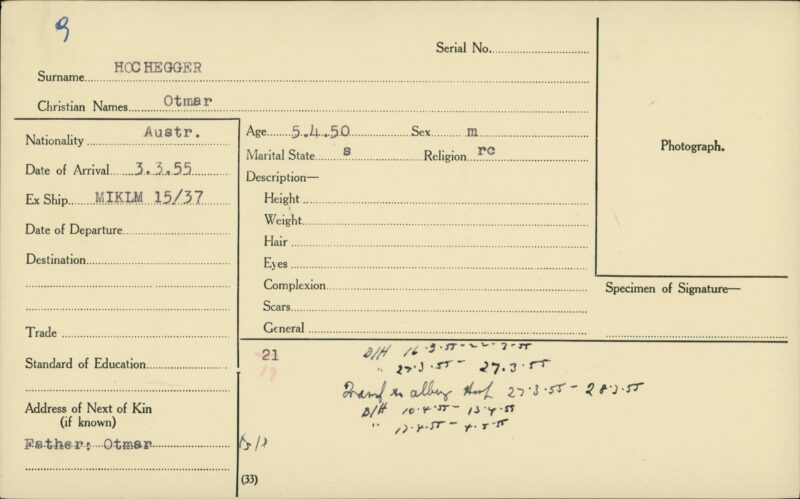 9
Serial No.
Surname HOCHEGGER
Christian Names Otmar
Nationality Austr.
Date of Arrival 3.3.55
Ex Ship MIKLM 15/37
Date of Departure
Destination
Trade
Standard of Education
Address of Next of Kin
(if known)
Father: Otmar
Age 5.4.50 Sex m
Marital State s Religion rc
Description—
Height
Weight
Hair
Eyes
Complexion
Scars
General
Photograph.
Specimen of Signature—
21
19
B/H 16.3.55 - 22.3.55
" 27.3.55 - 27.3.55
Transf to albury Hosp 27.3.55 - 28.3.55
B/H 10.4.55 - 13.4.55
" 4.5.55
(33)